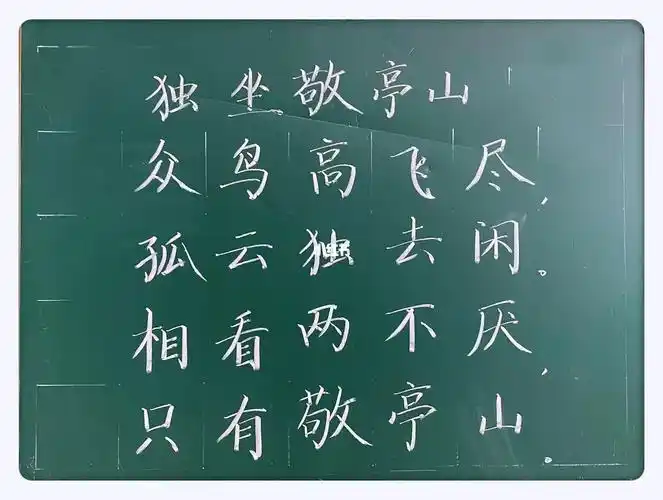 独坐敬亭山
众鸟高飞尽,
孤云独去闲。
相看两不厌,
只有敬亭山.